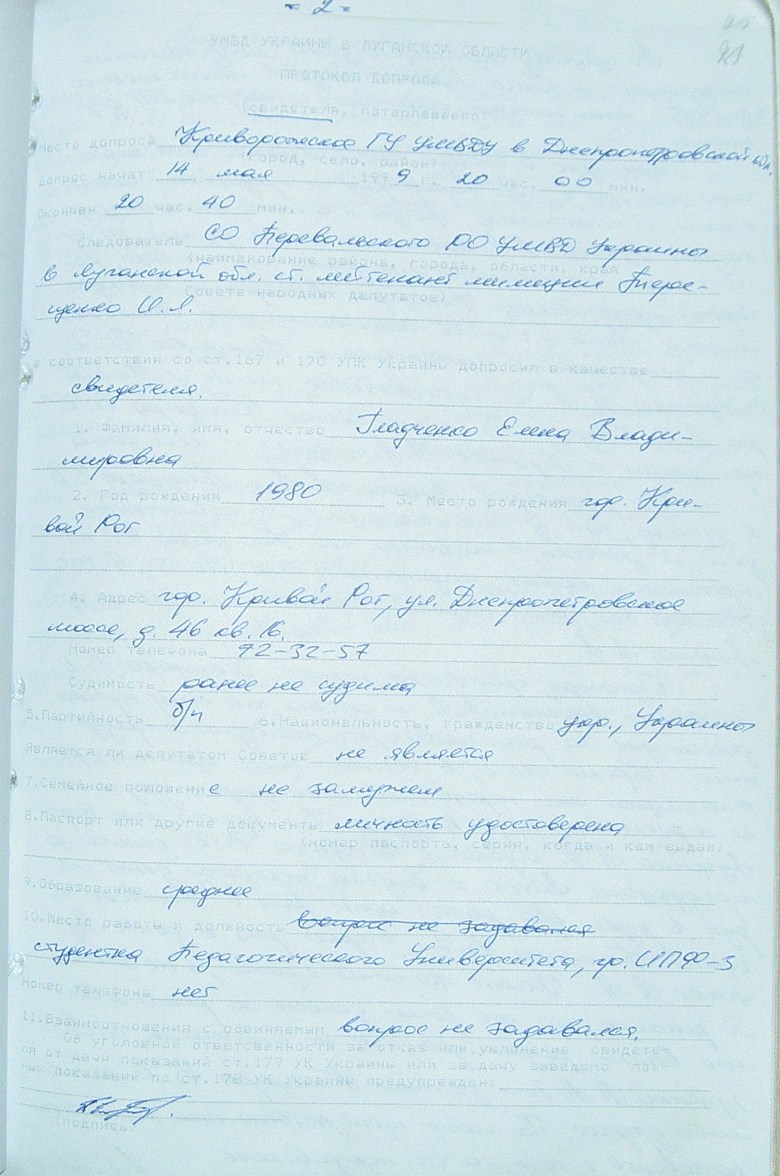 - 2 -
81
УМВД УКРАИНЫ В ЛУГАНСКОЙ ОБЛАСТИ
ПРОТОКОЛ ДОПРОСА
(свидетеля, потерпевшего)
Место допроса Криворожское ГУ УМВДУ в Днепропетровской обл.
(город, село, район)
Допрос начат 14 мая 1999 г. 20 час. 00 мин.
Окончен 20 час. 40 мин.
Следователь СО Перевальского РО УМВД Украины
(наименование района, города, области, края
в Луганской обл. ст. лейтенант милиции Тере-
Совета народных депутатов)
щенко И.Л.
в соответствии со ст.167 и 170 УПК Украины допросил в качестве
свидетеля.
1. Фамилия, имя, отчество Гладченко Елена Влади-
мировна
2. Год рождения 1980 3. Место рождения гор. Кри-
вой Рог
4. Адрес гор. Кривой Рог, ул. Днепропетровское
шоссе, д. 46 кв. 16.
Номер телефона 72-32-57
Судимость ранее не судима
5.Партийность б/п 6.Национальность, гражданство укр., Украины
Является ли депутатом Советов не является
7.Семейное положение не замужем
8.Паспорт или другие документы личность удостоверена
(номер паспорта, серия, когда и кем выдан)
9.Образование среднее
10.Место работы и должность вопрос не задавался
студентка Педагогического Университета, гр. ИПФ-3
Номер телефона нет
11.Взаимоотношения с обвиняемым вопрос не задавался.
Об уголовной ответственности за отказ или уклонение свидете-
ля от дачи показаний ст.179 УК Украины или за дачу заведомо лож-
ных показаний по ст.178 УК Украины предупрежден:
(подпись)